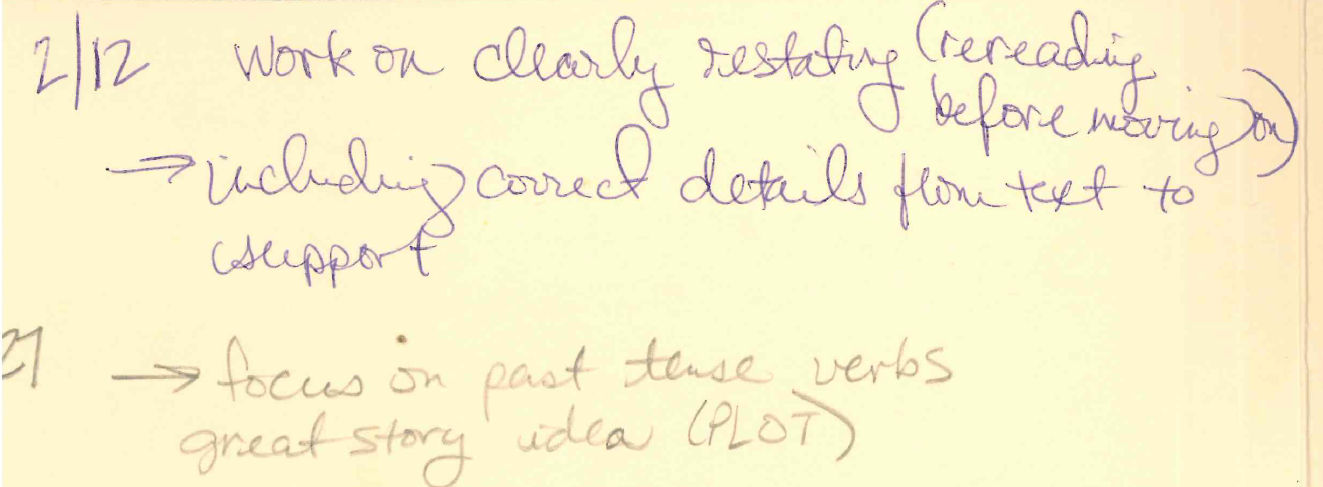 2/12 work on clearly restating (rereading
before moving on)
→ including correct details from text to
support
27 → focus on past tense verbs
great story idea (PLOT)